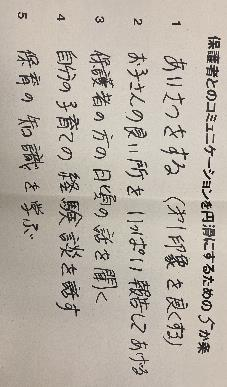 保護者とのコミュニケーションを円滑にするための5か条
1 あいさつをする (第1印象を良くする)
2 お子さんの良い所をいっぱい報告してあげる
3 保護者の方の日頃の話を聞く
4 自分の子育ての経験談を話す
5 保育の知識を学ぶ